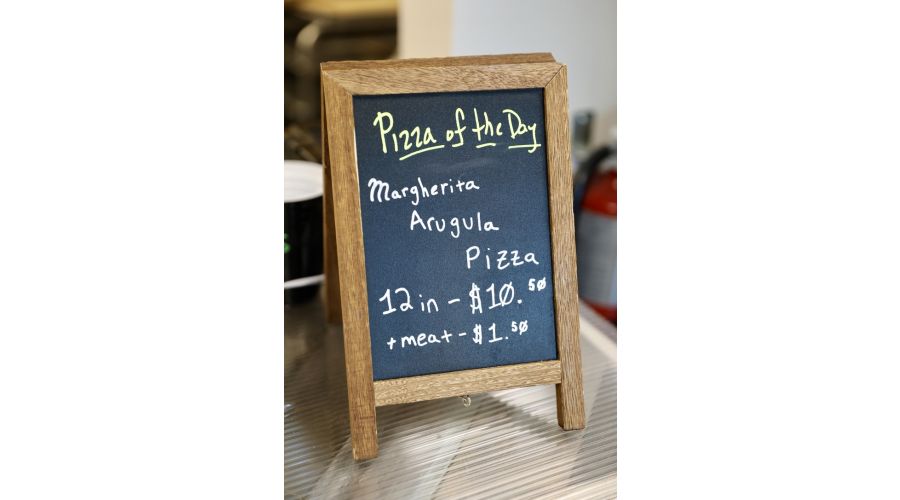 Pizza of the Day
Margherita
Arugula
Pizza
12 in - $10.50
+ meat - $1.50